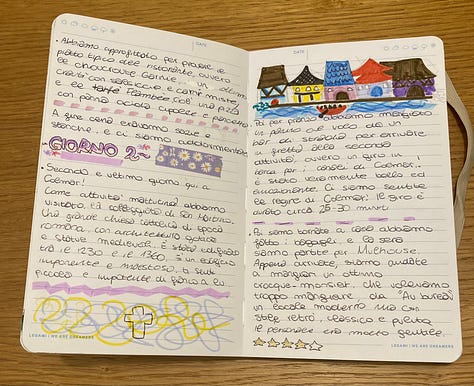 DATE
• Abbiamo approfittato per provare il
piatto tipico del ristorante, ovvero
le choucroute Garnie, un ottimo
crauti con salsiccia e carni miste,
e le tarte Flambée cioè una pizza
con panna acida cipolle e pancetta
A fine cena eravamo sazie e
stanche, e ci siamo addormentate
-GIORNO 2-
• Secondo e ultimo giorno qui a
Colmar!
Come attività mattutina abbiamo
visitato, la collegiata di San Martino.
Una grande chiesa cattolica di epoca
romana, con architettura gotica
e statue medievali. È stata edificata
tra il 1230 e il 1360. È un edificio
imponente e maestoso, ti senti
piccolo e impotente di fianco a lui
LEGAMI | WE ARE DREAMERS
DATE
Poi per pranzo abbiamo mangiato
un panino al volo da un
bar di strada per arrivare
in fretta alla seconda
attività, ovvero un giro in
barca per i canali di Colmar!
È stato veramente bello ed
emozionante. Ci siamo sentite
le regine di Colmar! Il giro è
durato circa 25-30 minuti
• Poi siamo tornate a casa abbiamo
fatto i bagagli, e la sera
siamo partite per Milhouse.
Appena arrivate, siamo andate
a mangiare un ottimo
croque-monsiet. che volevamo
troppo mangiare da "Au bureau"
un locale moderno ma con
stile retrò, classico e pulito,
il personale era molto gentile.
LEGAMI | WE ARE DREAMERS